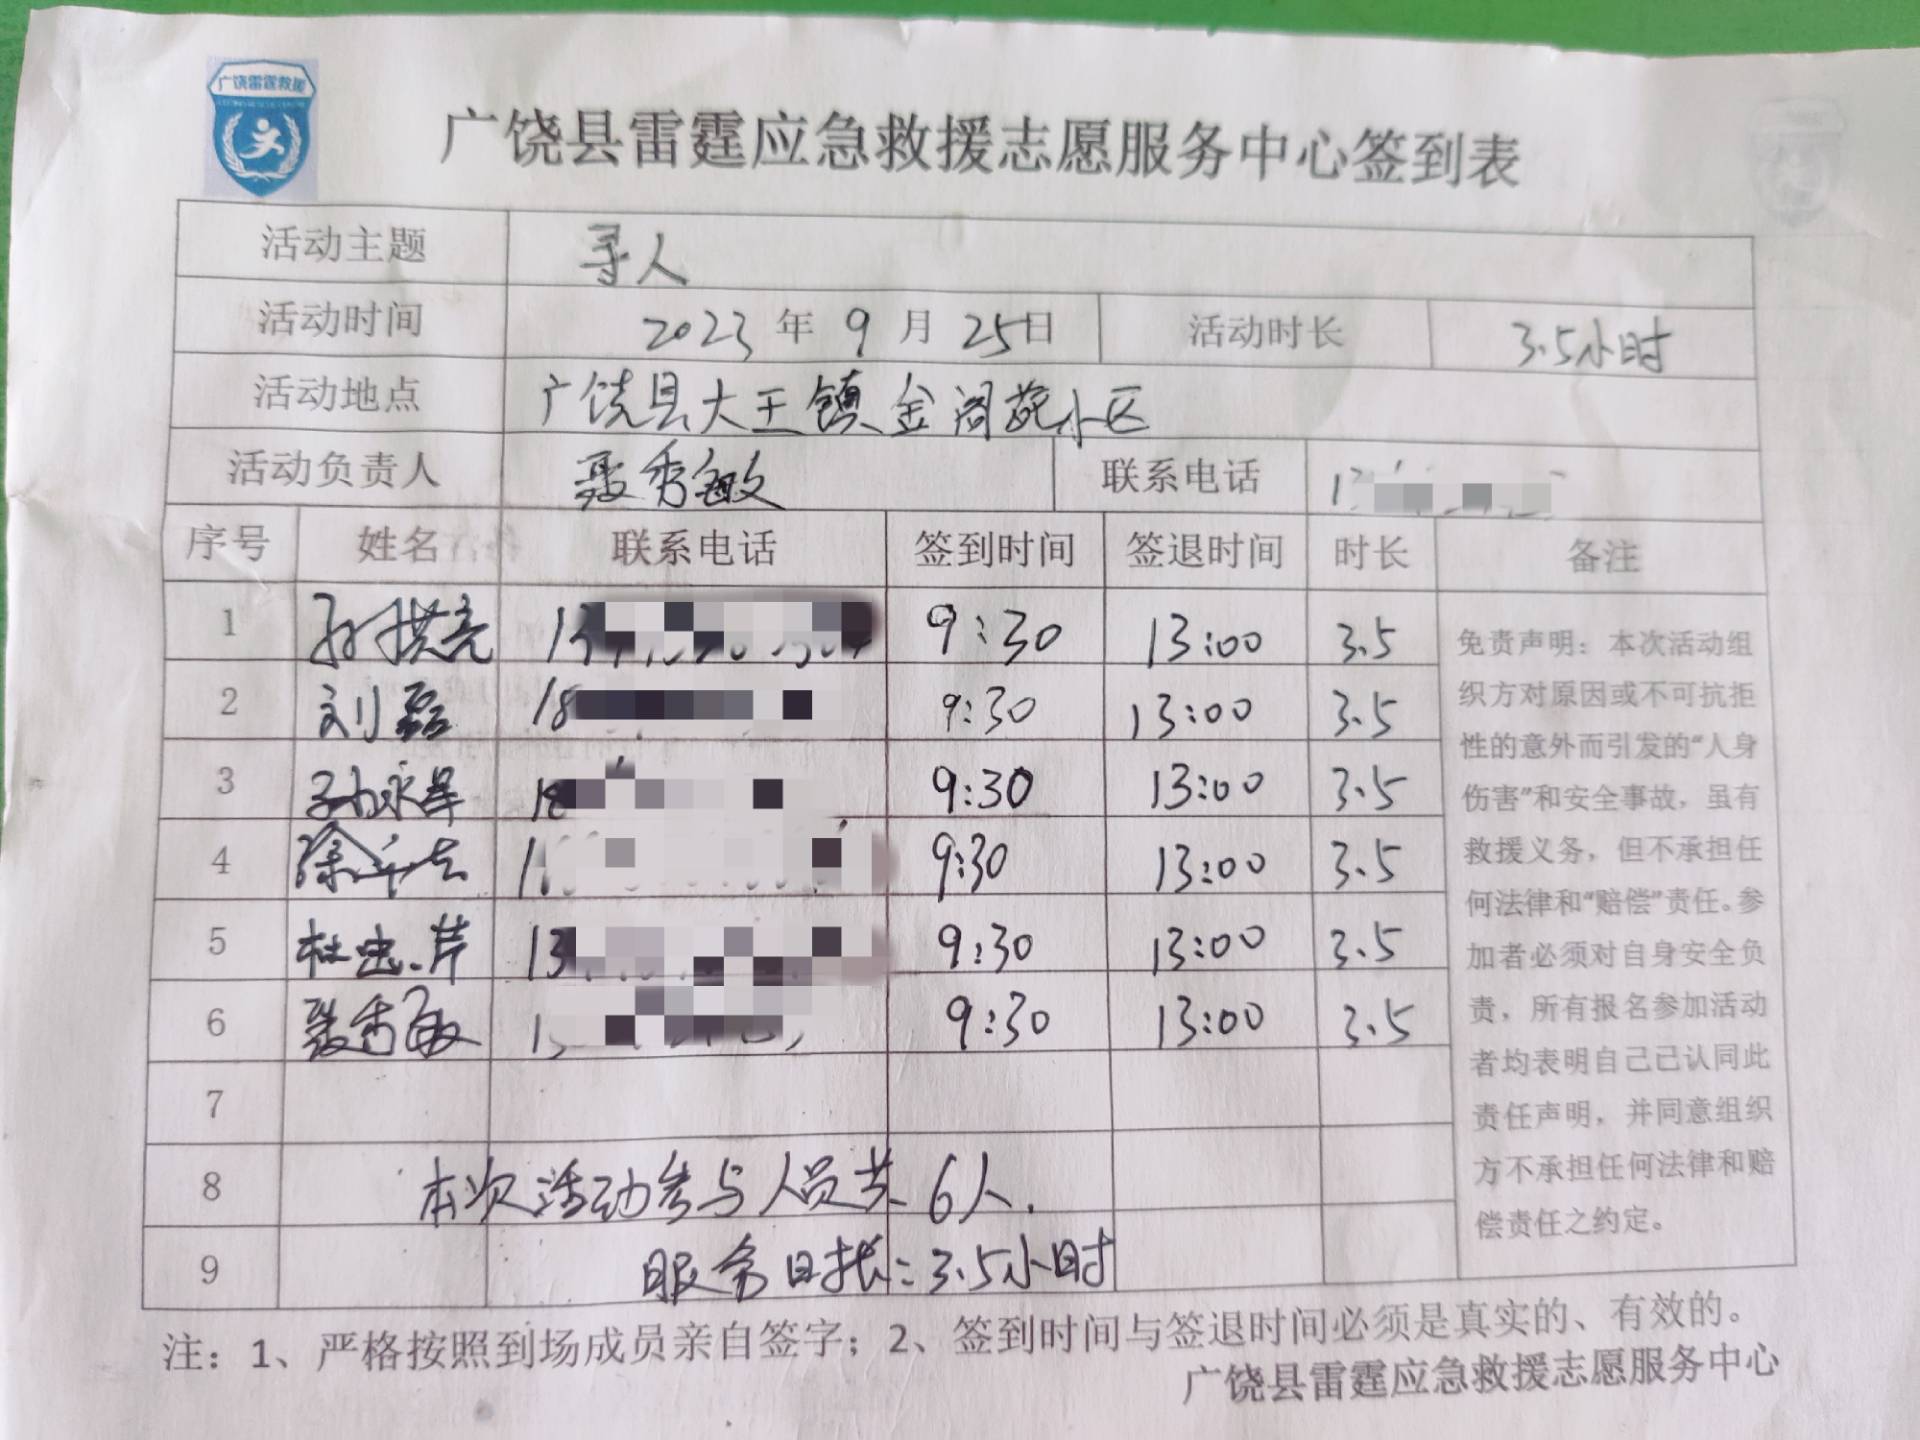 广饶雷霆救援
广饶县雷霆应急救援志愿服务中心签到表
活动主题 寻人
活动时间 2023年9月25日 活动时长 3.5小时
活动地点 广饶县大王镇金阁苑小区
活动负责人 聂秀敏 联系电话 1
序号 姓名 联系电话 签到时间 签退时间 时长 备注
1 孙洪亮 1 9:30 13:00 3.5
2 刘磊 18 9:30 13:00 3.5
3 孙永 18 9:30 13:00 3.5
4 徐 1 9:30 13:00 3.5
5 杜忠芹 13 9:30 13:00 3.5
6 聂秀敏 1 9:30 13:00 3.5
7
8 本次活动参与人员共6人.
9 服务时长:3.5小时
免责声明：本次活动组
织方对原因或不可抗拒
性的意外而引发的“人身
伤害”和安全事故，虽有
救援义务，但不承担任
何法律和“赔偿”责任。参
加者必须对自身安全负
责，所有报名参加活动
者均表明自己已认同此
责任声明，并同意组织
方不承担任何法律和赔
偿责任之约定。
注：1、严格按照到场成员亲自签字；2、签到时间与签退时间必须是真实的、有效的。
广饶县雷霆应急救援志愿服务中心